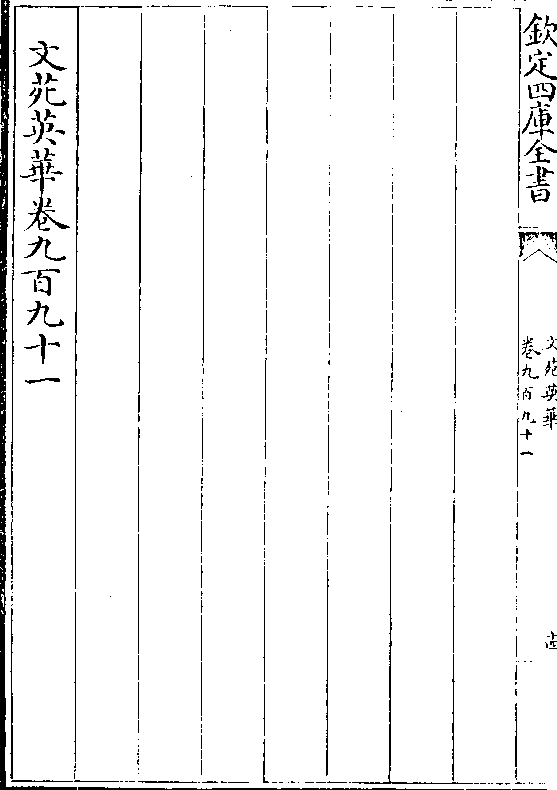 欽定四庫全書
文苑英華
卷九百九十一
文苑英華卷九百九十一